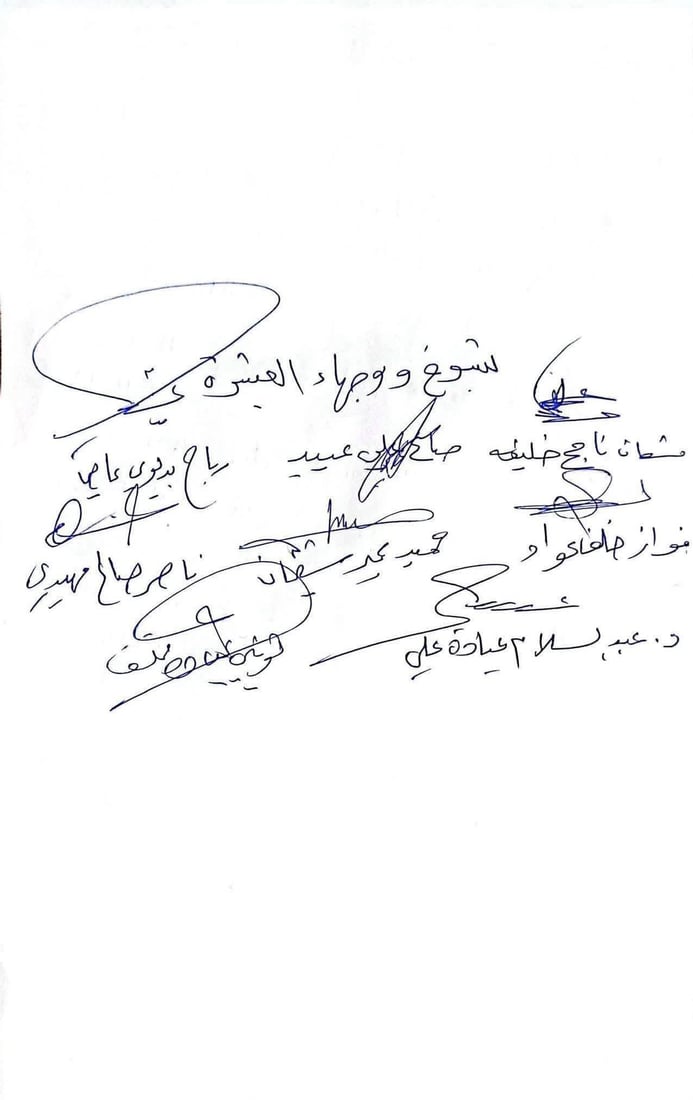 شيوخ ووجهاء العشيرة
مشعان ناجح خليفه صالح علي عبيد رباح بديوي عاصي
فواز خلف عواد حميد مشعان ناصر صالح مهيدي
د. عبد السلام عيادة علي خلف